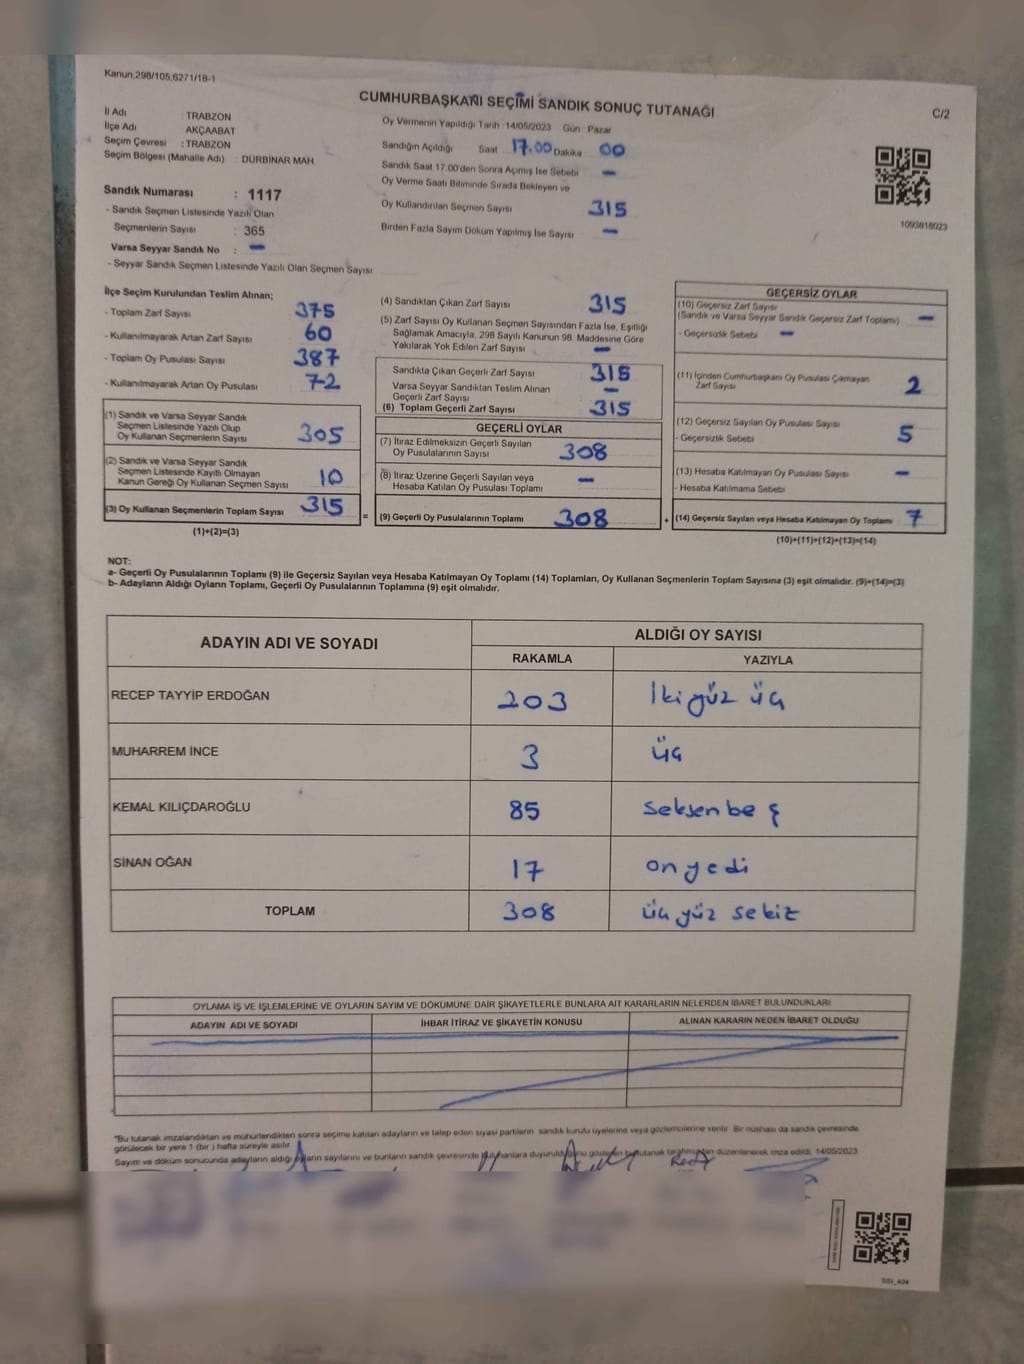 Kanun.298/105.6271/18-1
CUMHURBAŞKANI SEÇİMİ SANDIK SONUÇ TUTANAĞI
C/2
İl Adı : TRABZON
İlçe Adı : AKÇAABAT
Seçim Çevresi : TRABZON
Seçim Bölgesi (Mahalle Adı) : DÜRBİNAR MAH
Oy Vermenin Yapıldığı Tarih 14/05/2023 Gün : Pazar
Sandığın Açıldığı Saat 17.00 Dakika 00
Sandık Saat 17:00'den Sonra Açılmış İse Sebebi –
Oy Verme Saati Bitiminde Sırada Bekleyen ve
Oy Kullandırılan Seçmen Sayısı 315
Birden Fazla Sayım Döküm Yapılmış İse Sayısı –
1093818023
Sandık Numarası : 1117
- Sandık Seçmen Listesinde Yazılı Olan
Seçmenlerin Sayısı : 365
Varsa Seyyar Sandık No : –
- Seyyar Sandık Seçmen Listesinde Yazılı Olan Seçmen Sayısı
İlçe Seçim Kurulundan Teslim Alınan;
- Toplam Zarf Sayısı 375
- Kullanılmayarak Artan Zarf Sayısı 60
- Toplam Oy Pusulası Sayısı 387
- Kullanılmayarak Artan Oy Pusulası 72
(1) Sandık ve Varsa Seyyar Sandık
Seçmen Listesinde Yazılı Olup
Oy Kullanan Seçmenlerin Sayısı 305
(2) Sandık ve Varsa Seyyar Sandık
Seçmen Listesinde Kayıtlı Olmayan
Kanun Gereği Oy Kullanan Seçmen Sayısı 10
(3) Oy Kullanan Seçmenlerin Toplam Sayısı 315
(1)+(2)=(3)
(4) Sandıktan Çıkan Zarf Sayısı 315
(5) Zarf Sayısı Oy Kullanan Seçmen Sayısından Fazla İse, Eşitliği
Sağlamak Amacıyla, 298 Sayılı Kanunun 98. Maddesine Göre
Yakılarak Yok Edilen Zarf Sayısı –
Sandıkta Çıkan Geçerli Zarf Sayısı 315
Varsa Seyyar Sandıktan Teslim Alınan
Geçerli Zarf Sayısı –
(6) Toplam Geçerli Zarf Sayısı 315
GEÇERLİ OYLAR
(7) İtiraz Edilmeksizin Geçerli Sayılan
Oy Pusulalarının Sayısı 308
(8) İtiraz Üzerine Geçerli Sayılan veya
Hesaba Katılan Oy Pusulası Toplamı –
= (9) Geçerli Oy Pusulalarının Toplamı 308 +
GEÇERSİZ OYLAR
(10) Geçersiz Zarf Sayısı
(Sandık ve Varsa Seyyar Sandık Geçersiz Zarf Toplamı) –
- Geçersizlik Sebebi –
(11) İçinden Cumhurbaşkanı Oy Pusulası Çıkmayan
Zarf Sayısı 2
(12) Geçersiz Sayılan Oy Pusulası Sayısı 5
- Geçersizlik Sebebi
(13) Hesaba Katılmayan Oy Pusulası Sayısı –
- Hesaba Katılmama Sebebi
(14) Geçersiz Sayılan veya Hesaba Katılmayan Oy Toplamı 7
(10)+(11)+(12)+(13)=(14)
NOT:
a- Geçerli Oy Pusulalarının Toplamı (9) ile Geçersiz Sayılan veya Hesaba Katılmayan Oy Toplamı (14) Toplamları, Oy Kullanan Seçmenlerin Toplam Sayısına (3) eşit olmalıdır. (9)+(14)=(3)
b- Adayların Aldığı Oyların Toplamı, Geçerli Oy Pusulalarının Toplamına (9) eşit olmalıdır.
ADAYIN ADI VE SOYADI ALDIĞI OY SAYISI
RAKAMLA YAZIYLA
RECEP TAYYİP ERDOĞAN 203 İkiyüz üç
MUHARREM İNCE 3 üç
KEMAL KILIÇDAROĞLU 85 seksenbeş
SİNAN OĞAN 17 onyedi
TOPLAM 308 üçyüz sekiz
OYLAMA İŞ VE İŞLEMLERİNE VE OYLARIN SAYIM VE DÖKÜMÜNE DAİR ŞİKAYETLERLE BUNLARA AİT KARARLARIN NELERDEN İBARET BULUNDUKLARI
ADAYIN ADI VE SOYADI İHBAR İTİRAZ VE ŞİKAYETİN KONUSU ALINAN KARARIN NEDEN İBARET OLDUĞU
"Bu tutanak imzalandıktan ve mühürlendikten sonra seçime katılan adayların ve talep eden siyasi partilerin sandık kurulu üyelerine veya gözlemcilerine verilir. Bir nüshası da sandık çevresinde
görülecek bir yere 1 (bir) hafta süreyle asılır.
Sayım ve döküm sonucunda adayların aldığı oyların sayılarını ve bunların sandık çevresinde bulunanlara duyurulduğunu gösteren bu tutanak tarafımızdan düzenlenerek imza edildi. 14/05/2023
SSt_404